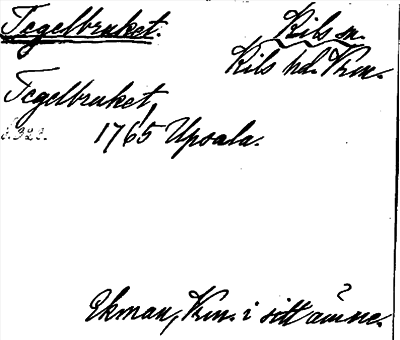 Tegelbruket. Kils sn.
Kils hd. Vrm.
Tegelbruket,
s. 322. 1765 Upsala.
Ekman, Vrm. i sitt ämne.